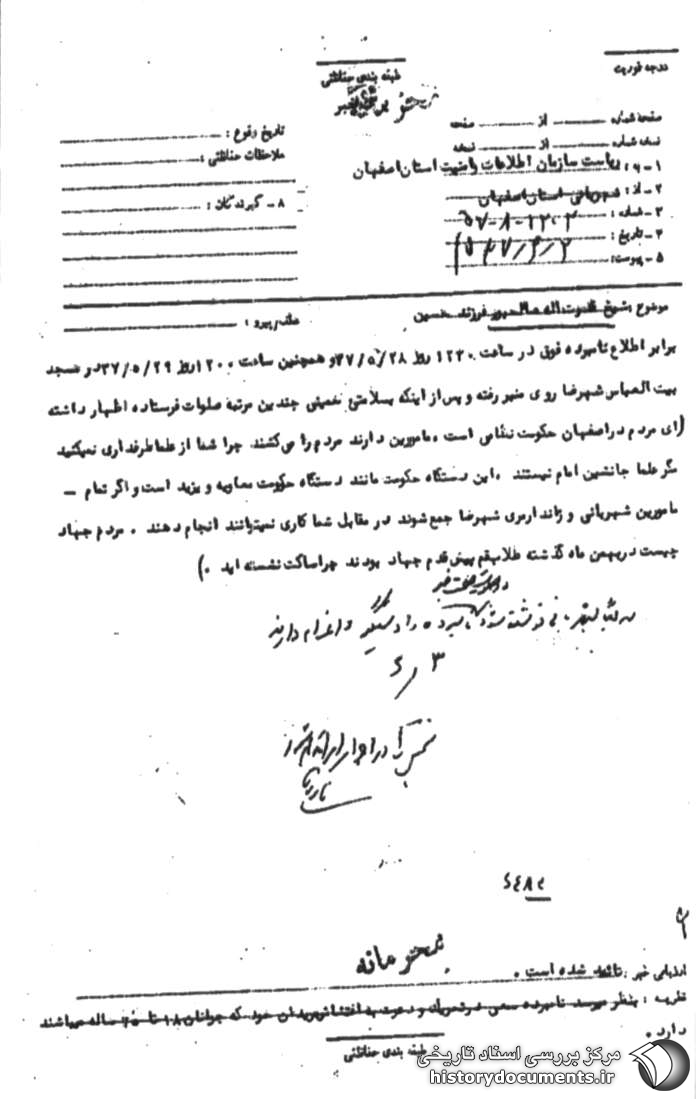 درجه فوریت
طبقه بندی حفاظتی
صفحه شماره از صفحه
نسخه شماره از نسخه
تاریخ وقوع :
ملاحظات حفاظتی :
۱ـ به : ریاست سازمان اطلاعات و امنیت استان اصفهان
۲ـ از : شهربانی استان اصفهان
۳ـ شماره :
۴ـ تاریخ :
۵ـ پیوست :
۸ـ گیرندگان :
موضوع : شیخ قدرت اله صالحپور فرزند حسین
عطف پیرو :
برابر اطلاع نامبرده فوق در ساعت ۱۲۳۰ روز ۳۷/۵/۲۸ و همچنین ساعت ۱۲۰۰ روز ۳۷/۵/۲۹ در مسجد
بیت العباس شهرضا روی منبر رفته و پس از اینکه بسلامتی خمینی چندین مرتبه صلوات فرستاده اظهار داشته
(ای مردم در اصفهان حکومت نظامی است ، مامورین دارند مردم را می کشند چرا شما از علما طرفداری نمیکنید
مگر علما جانشین امام نیستند ، این دستگاه حکومت مانند دستگاه حکومت معاویه و یزید است و اگر تمام ـ
مامورین شهربانی و ژاندارمری شهرضا جمع شوند در مقابل شما کاری نمیتوانند انجام دهند . مردم جهاد
چیست در بهمن ماه گذشته طلاب قم پیش قدم جهاد بودند چرا ساکت نشسته اید . )
را دستگیر و اعزام دارند
۳/۶
محرمانه
ارزیابی خبر : تائید شده است .
نظریه : بنظر میرسد نامبرده سعی در تحریک و دعوت به اغتشاش مریدان خود که جوانان ۱۸ تا ۲۵ ساله میباشند
دارد .
طبقه بندی حفاظتی
مرکز بررسی اسناد تاریخی
historydocuments.ir